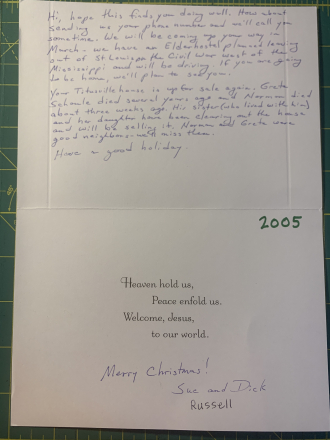 Hi, hope this finds you doing well. How about
sending me your phone number and we'll call you
sometime. We will be coming up your way in
March - we have an Elderhostel planned leaving
out of St Louis on the Civil War west of the
Mississippi and will be driving. If you are going
to be home, we'll plan to see you.
Your Titusville house is up for sale again. Greta
died several years ago and Norman died
about three weeks ago. His sister (who lived with him)
and her daughter have been cleaning out the house
and will be selling it. Norman and Greta were
good neighbors - we'll miss them.
Have a good holiday.
2005
Heaven hold us,
Peace enfold us.
Welcome, Jesus,
to our world.
Merry Christmas!
Sue and Dick
Russell